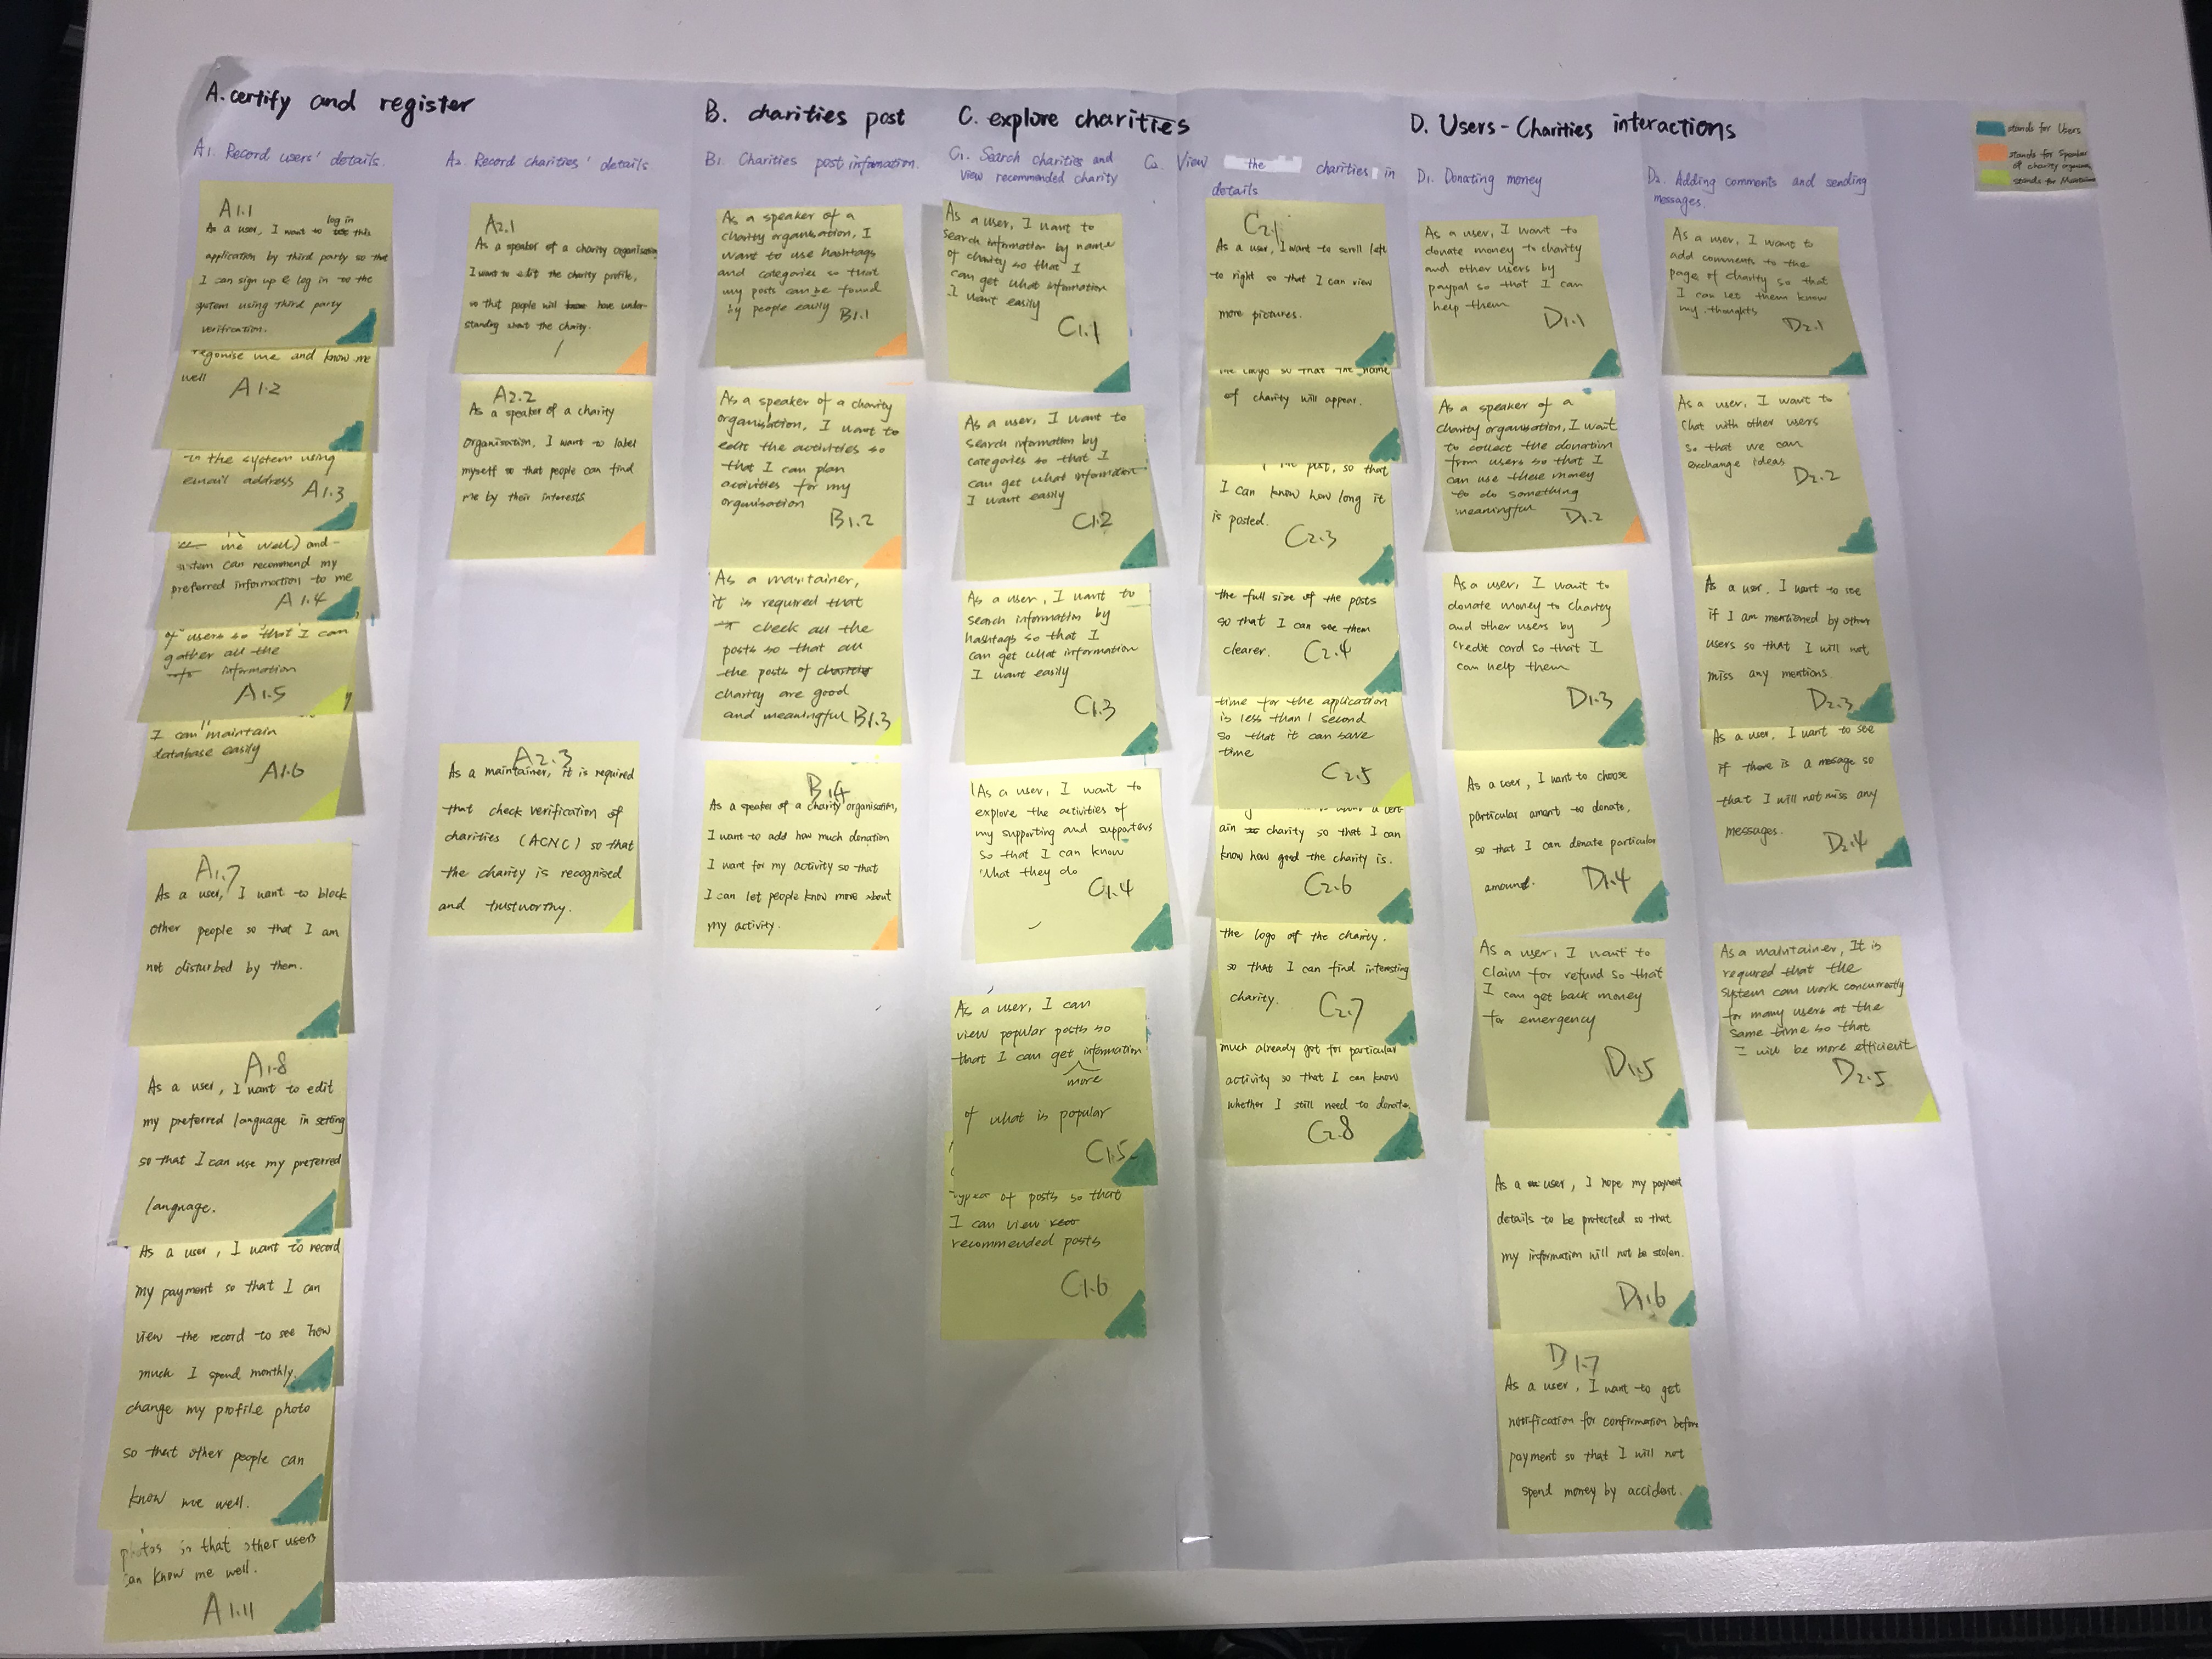 A. certify and register
A1. Record users' details.
A1.1
log in
As a user, I want to use this
application by third party so that
I can sign up & log in to the
system using third party
verification.
regonise me and know me
well
A1.2
in the system using
email address
A1.3
me well) and
system can recommend my
preferred information to me
A1.4
of users so that I can
gather all the
information
A1.5
I can maintain
database easily
A1.6
A1.7
As a user, I want to block
other people so that I am
not disturbed by them.
A1.8
As a user, I want to edit
my preferred language in setting
so that I can use my preferred
language.
As a user, I want to record
my payment so that I can
view the record to see how
much I spend monthly.
change my profile photo
so that other people can
know me well.
photos so that other users
can know me well.
A1.11
A2. Record charities' details
A2.1
As a speaker of a charity organisation
I want to edit the charity profile,
so that people will have under-
standing about the charity.
A2.2
As a speaker of a charity
organisation, I want to label
myself so that people can find
me by their interests
A2.3
As a maintainer, it is required
that check verification of
charities (ACNC) so that
the charity is recognised
and trustworthy.
B. charities post
B1. Charities post information.
As a speaker of a
charity organisation, I
want to use hashtags
and categories so that
my posts can be found
by people easily
B1.1
As a speaker of a charity
organisation, I want to
edit the activities so
that I can plan
activities for my
organisation
B1.2
As a maintainer,
it is required that
check all the
posts so that all
the posts of charity
charity are good
and meaningful B1.3
B1.4
As a speaker of a charity organisation,
I want to add how much donation
I want for my activity so that
I can let people know more about
my activity.
C. explore charities
C1. Search charities and
view recommended charity
As a user, I want to
search information by name
of charity so that I
can get what information
I want easily
C1.1
As a user, I want to
search information by
categories so that I
can get what information
I want easily
C1.2
As a user, I want to
search information by
hashtags so that I
can get what information
I want easily
C1.3
As a user, I want to
explore the activities of
my supporting and supporters
so that I can know
what they do
C1.4
As a user, I can
view popular posts so
that I can get information
more
of what is popular
C1.5
types of posts so that
I can view
recommended posts
C1.6
C2. View the charities in
details
C2.1
As a user, I want to scroll left
to right so that I can view
more pictures.
the logo so that the name
of charity will appear.
the post, so that
I can know how long it
is posted.
C2.3
the full size of the posts
so that I can see them
clearer.
C2.4
time for the application
is less than 1 second
so that it can save
time
C2.5
a cert-
ain charity so that I can
know how good the charity is.
C2.6
the logo of the charity.
so that I can find interesting
charity.
C2.7
much already got for particular
activity so that I can know
whether I still need to donate.
C2.8
D. Users-Charities interactions
D1. Donating money
As a user, I want to
donate money to charity
and other users by
paypal so that I can
help them
D1.1
As a speaker of a
charity organisation, I want
to collect the donation
from users so that I
can use these money
to do something
meaningful
D1.2
As a user, I want to
donate money to charity
and other users by
credit card so that I
can help them
D1.3
As a user, I want to choose
particular amont to donate,
so that I can donate particular
amount.
D1.4
As a user, I want to
claim for refund so that
I can get back money
for emergency
D1.5
As a user, I hope my payment
details to be protected so that
my information will not be stolen.
D1.6
D1.7
As a user, I want to get
notification for confirmation before
payment so that I will not
spend money by accident.
D2. Adding comments and sending
messages.
As a user, I want to
add comments to the
page of charity so that
I can let them know
my thoughts
D2.1
As a user, I want to
chat with other users
so that we can
exchange ideas
D2.2
As a user, I want to see
if I am mentioned by other
users so that I will not
miss any mentions.
D2.3
As a user, I want to see
if there is a message so
that I will not miss any
messages.
D2.4
As a maintainer, It is
required that the
system can work concurrently
for many users at the
same time so that
I will be more efficient
D2.5
stands for Users
stands for Speaker
of charity organisation
stands for Maintainer